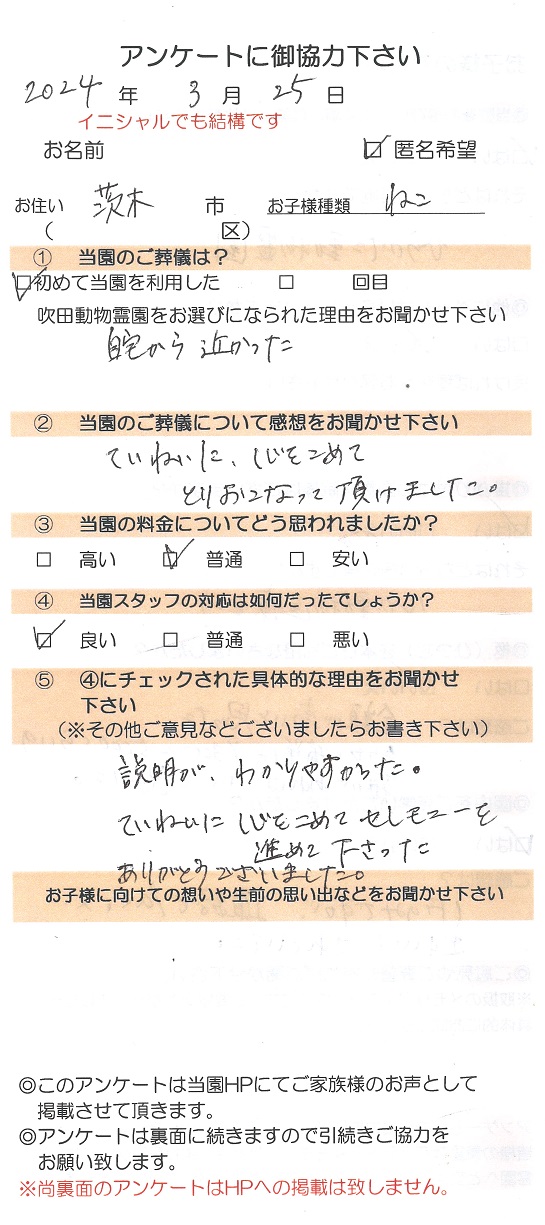 アンケートに御協力下さい
2024 年 3 月 25 日
イニシャルでも結構です
お名前 ☑ 匿名希望
お住い 茨木 市 お子様種類 ねこ
( 区)
① 当園のご葬儀は?
☑初めて当園を利用した □ 回目
吹田動物霊園をお選びになられた理由をお聞かせ下さい
自宅から近かった
② 当園のご葬儀について感想をお聞かせ下さい
ていねいに、心をこめて
とりおこなって頂けました。
③ 当園の料金についてどう思われましたか?
□ 高い ☑ 普通 □ 安い
④ 当園スタッフの対応は如何だったでしょうか?
☑ 良い □ 普通 □ 悪い
⑤ ④にチェックされた具体的な理由をお聞かせ
下さい
(※その他ご意見などございましたらお書き下さい)
説明が、わかりやすかった。
ていねいに心をこめてセレモニーを
進めて下さった
ありがとうございました。
お子様に向けての想いや生前の思い出などをお聞かせ下さい
◎このアンケートは当園HPにてご家族様のお声として
掲載させて頂きます。
◎アンケートは裏面に続きますので引続きご協力を
お願い致します。
※尚裏面のアンケートはHPへの掲載は致しません。